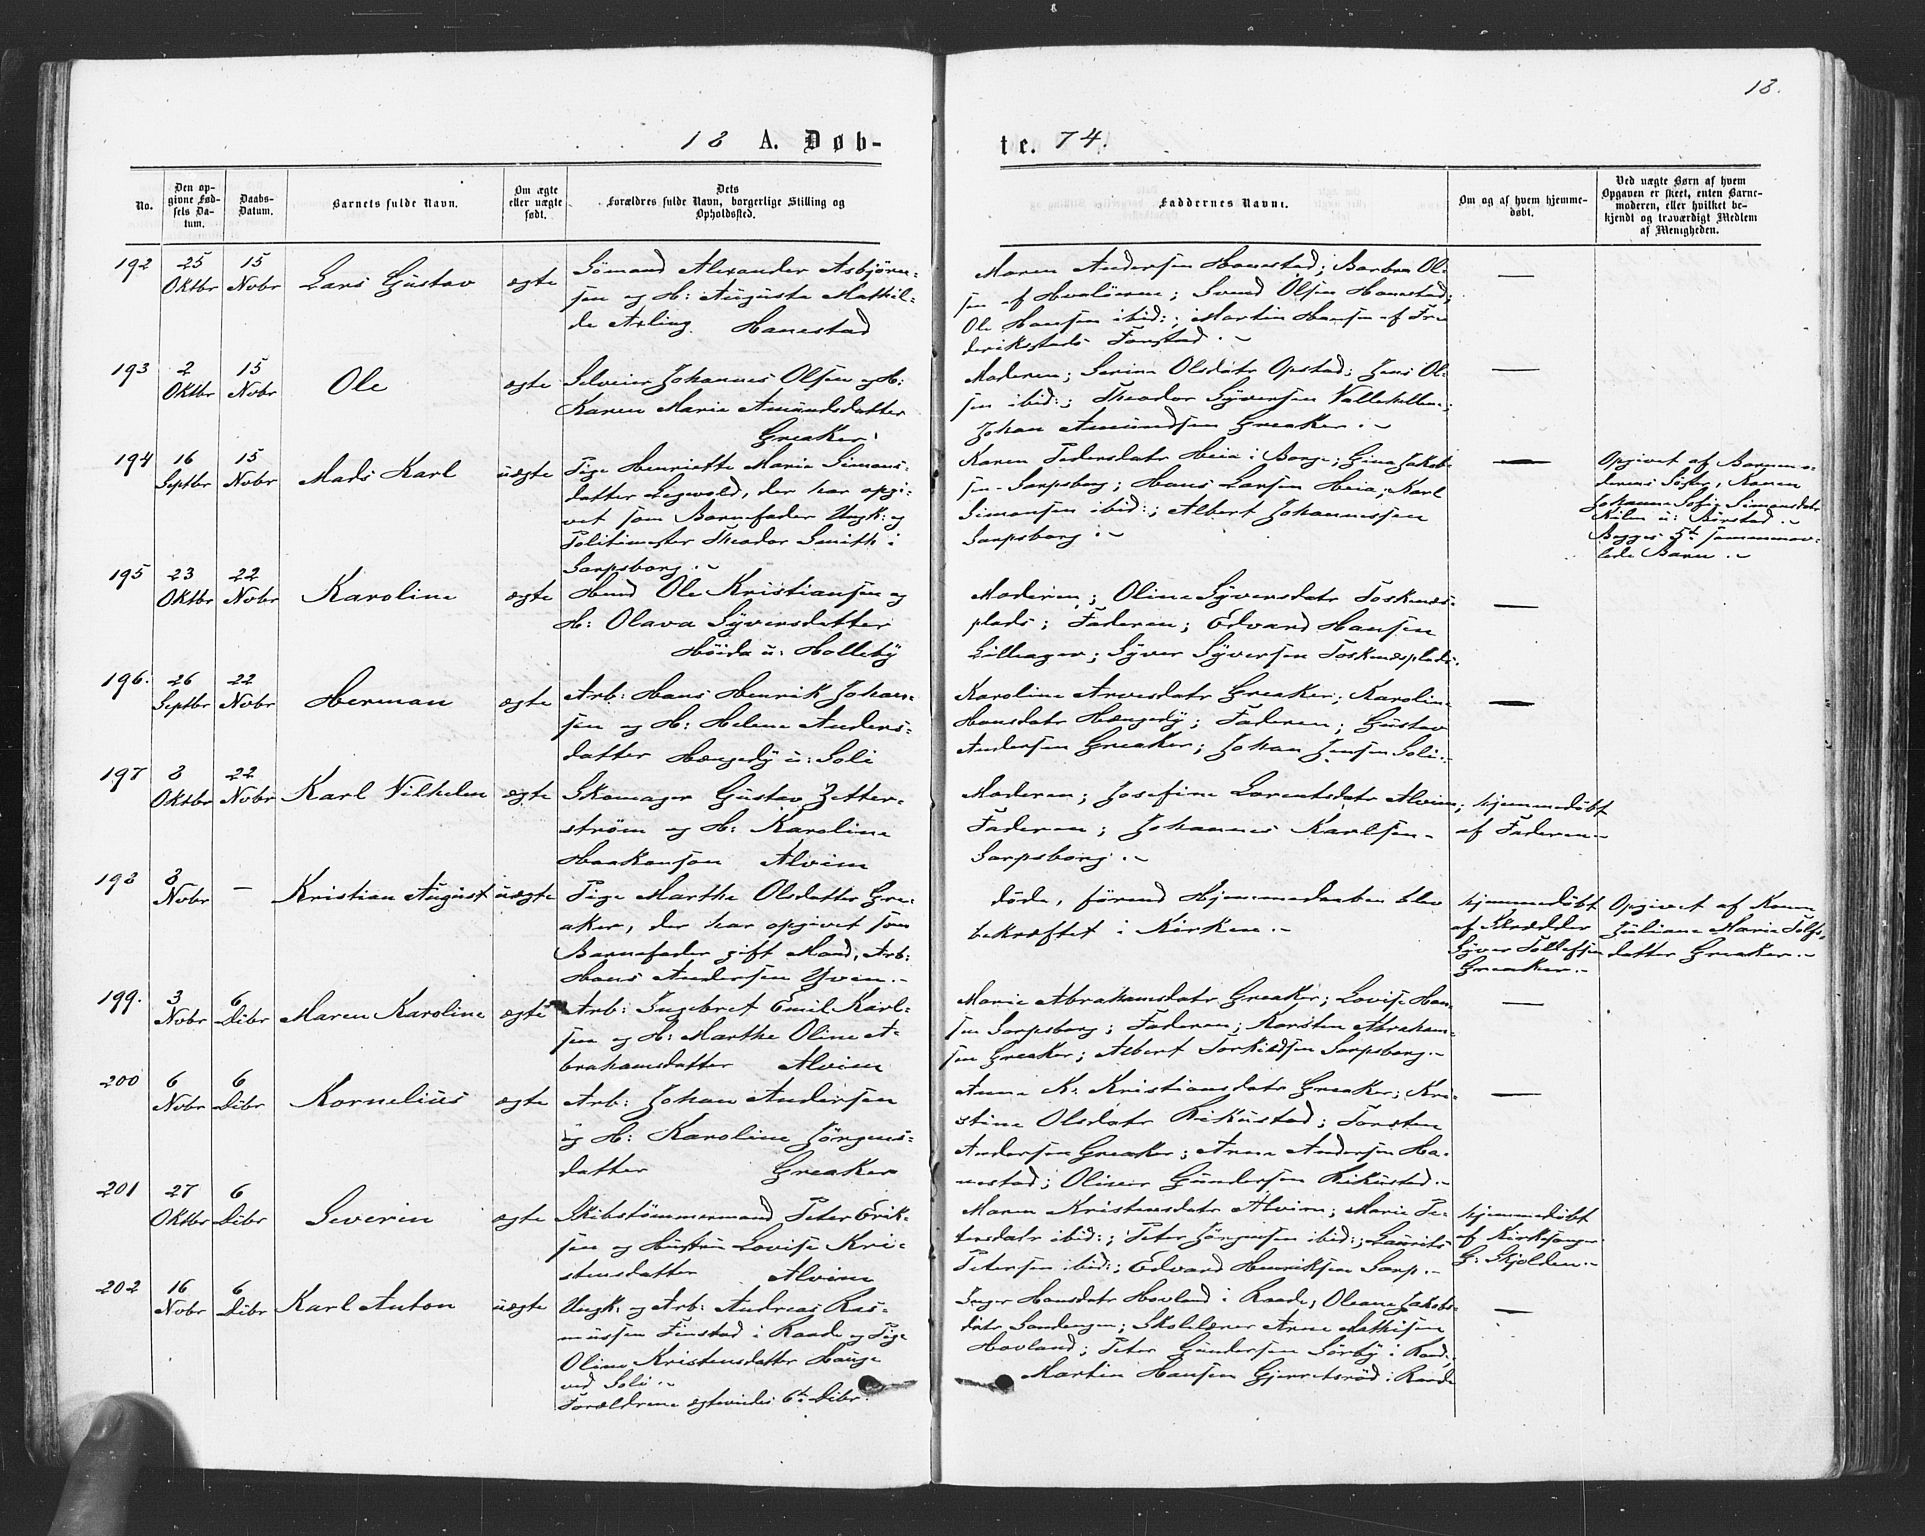 18.
18 A. Døb-
te. 74.
No.
Den op-
givne Fød-
sels Da-
tum.
Daabs-
Datum.
Barnets fulde Navn.
Om ægte
eller uægte
født.
Dets
Forældres fulde Navn, borgerlige Stilling og
Opholdssted.
Faddernes Navne.
Om og af hvem hjemme-
døbt.
Ved uægte Børn af hvem
Opgaven er skeet, enten Barne-
moderen, eller hvilket be-
kjendt og troværdigt Medlem
af Menigheden.
192
25
Oktbr
15
Novbr
Lars Gustav
ægte
Sømand Alexander Asbjørn-
sen og H: Augusta Mathil-
de Arling. Hanestad
Maren Andersen Hanestad; Barbra Ol-
sen af Hvaløerne; Svend Olsen Hanestad;
Ole Hansen ibid:; Martin Hansen af Fre
derikstads Forstad.
—
193
2
Oktbr
15
Novbr
Ole
ægte
Selveier Johannes Olsen og H:
Karen Marie Amundsdatter
Greaker.
Moderen; Serine Olsdatr Opstad; Jens Ol-
sen ibid:; Theodor Syversen Valleskillen;
Johan Amundsen Greaker.
—
194
16
Septbr
15
Novbr
Mads Karl
uægte
Pige Henriette Marie Simons-
datter Legvold, der har opgi-
vet som Barnefader Ungk: og
Politimester Theodor Smith i
Sarpsborg.
Karen Pedersdatr Heia i Borge; Gina Jakob-
sen Sarpsborg; Hans Larsen Heia; Karl
Simonsen ibid:; Albert Johannessen
Sarpsborg.
—
Opgivet af Barnemo-
derens Søster, Konen
Johanne Sofie Simonsdatr
u: Borstad.
Begges 5te sammenav-
lede Barn.
195
23
Oktbr
22
Novbr
Karoline
ægte
Husmd Ole Kristiansen og
H: Olava Syversdatter
Høida u: Holleby
Moderen; Oline Syversdatr Toskenæs-
plads; Faderen; Edvard Hansen
Lilleager; Syver Syversen Toskenæsplads.
—
196.
26
Septbr
22
Novbr
Herman
ægte
Arb: Hans Henrik Johan-
sen og H: Helene Anders-
datter Hængedy u: Soli
Karoline Arvesdatr Greaker; Karoline
Hansdatr Hængedy; Faderen; Gustav
Andersen Greaker; Johan Jensen Soli.
—
197
8
Oktbr
22
Novbr
Karl Vilhelm
ægte
Skomager Gustav Zetter-
strøm og H: Karoline
Haakonson Alvim
Moderen; Josefine Lorentsdatr Alvim;
Faderen; Johannes Karlsen
Sarpsborg.
Hjemmedøbt
af Faderen
198
8
Novbr
—
Kristian August
uægte
Pige Marthe Olsdatter Gre-
aker, der har opgivet som
Barnefader gift Mand, Arb:
Hans Andersen Yven.
døde, førend Hjemmedaaben blev
bekræftet i Kirken.
Hjemmedøbt
af Skrædder
Syver Tollefsen
Greaker.
Opgivet af Konen
Juliane Marie Tollfs-
datter Greaker.
199.
3
Novbr
6
Dcbr
Maren Karoline
ægte
Arb: Ingebret Emil Karl-
sen og H: Marthe Oline A-
brahamsdatter Alvim
Marie Abrahamsdatr Greaker; Lovise Han-
sen Sarpsborg; Faderen; Karsten Abraham-
sen Greaker; Albert Torkildsen Sarpsborg.
—
200
6
Novbr
6
Dcbr
Kornelius
ægte
Arb: Johan Andersen
og H: Karoline Jørgens-
datter Greaker
Anne K: Kristiansdatr Greaker; Kri-
stine Olsdatr Rikustad; Torsten
Andersen Greaker; Arne Andersen Ha-
nestad; Oliver Gundersen Rikustad.
—
201
27
Oktbr
6
Dcbr
Severin
ægte
Skibstømmermand Peter Erik-
sen og Hustru Lovise Kri-
stensdatter Alvim
Maren Kristensdatr Alvim; Marie Pe-
tersdatr ibid:; Peter Jørgensen ibid:; Laurits
Petersen ibid:; Edvard Henriksen Sarp.
Hjemmedøbt
af Kirkesanger
G: Skjolden.
202
16
Novbr
6
Dcbr
Karl Anton
uægte
Ungk: og Arb: Andreas Ras-
mussen Finstad i Raade og Pige
Oline Kristensdatter Hauge
ved Soli.
Forældrene ægteviedes 6te Dcbr.
Inger Hansdatr Hovland i Raade; Oleane Jakobs-
datr Sandengen; Skolelærer Arne Mathisen
Hovland; Peter Gundersen Sørby i Raade;
Martin Hansen Gjerretsrød i Raade
—